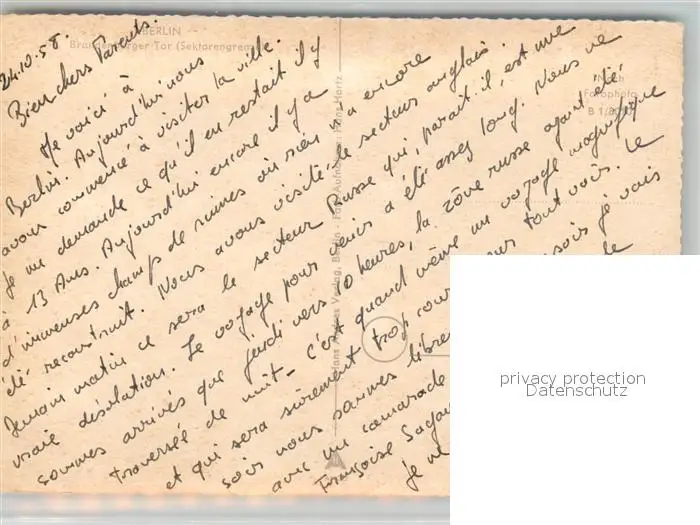 BERLIN
Brandenburger Tor (Sektorengrenze)
24.10.58.
Bien chers Parents.
Me voici à
Berlin. Aujourd'hui nous
avons commencé à visiter la ville.
Je me demande ce qu'il en restait il y
a 13 Ans. Aujourd'hui encore il y a
d'immenses champ de ruines où rien n'a encore
été reconstruit. Nous avons visité le secteur anglais.
Demain matin ce sera le secteur Russe qui, parait-il, est une
vraie désolation. Le voyage pour venir a été assez long. Nous ne
sommes arrivés que jeudi vers 10 heures, la zône russe ayant été
traversée de nuit - C'est quand même un voyage magnifique
et qui sera sûrement trop cour pour tout voir. Le
soir nous sommes libre soir je vais
avec un camarade de
Françoise Saga
Je ne
Hans Andres Verlag, Berlin - Foto-Aufnahme: Hans Hartz
Nach
Fotophoto
B 1/
privacy protection
Datenschutz